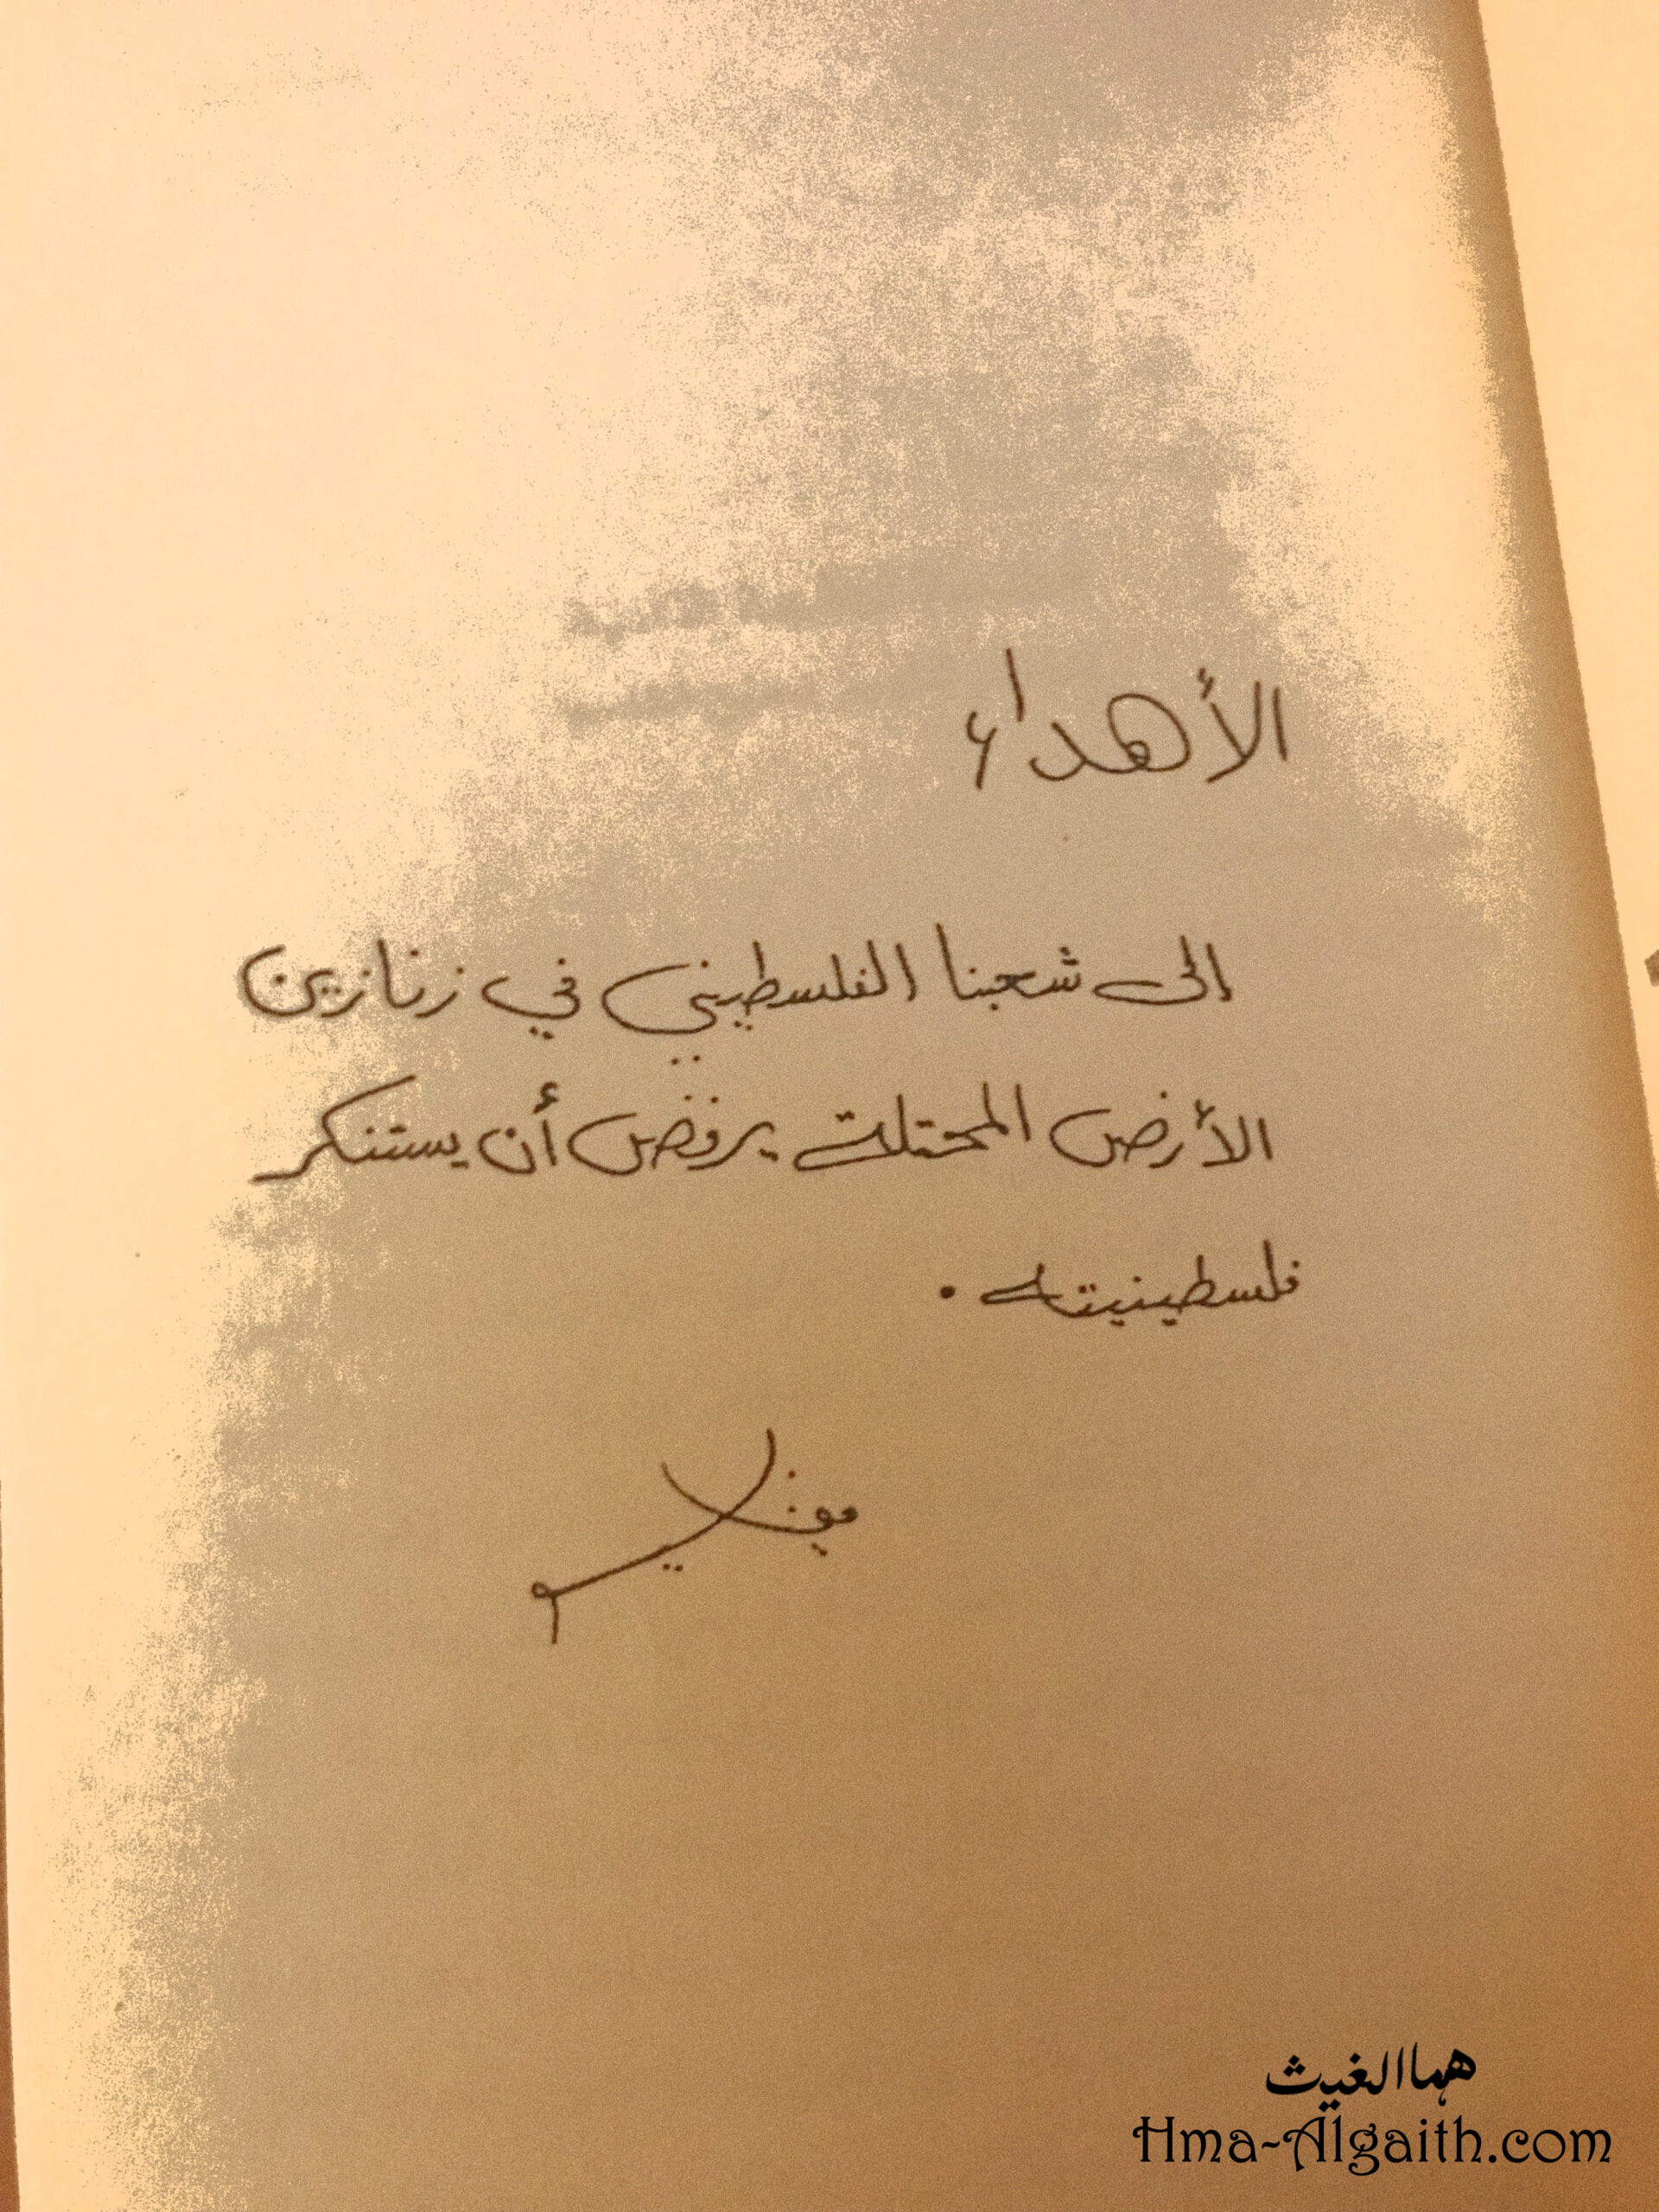 الأهداء
الى شعبنا الفلسطيني في زنازين
الأرض المحتلة يرفض أن يستنكر
فلسطينيته .
هما الغيث
Hma-Algaith.com